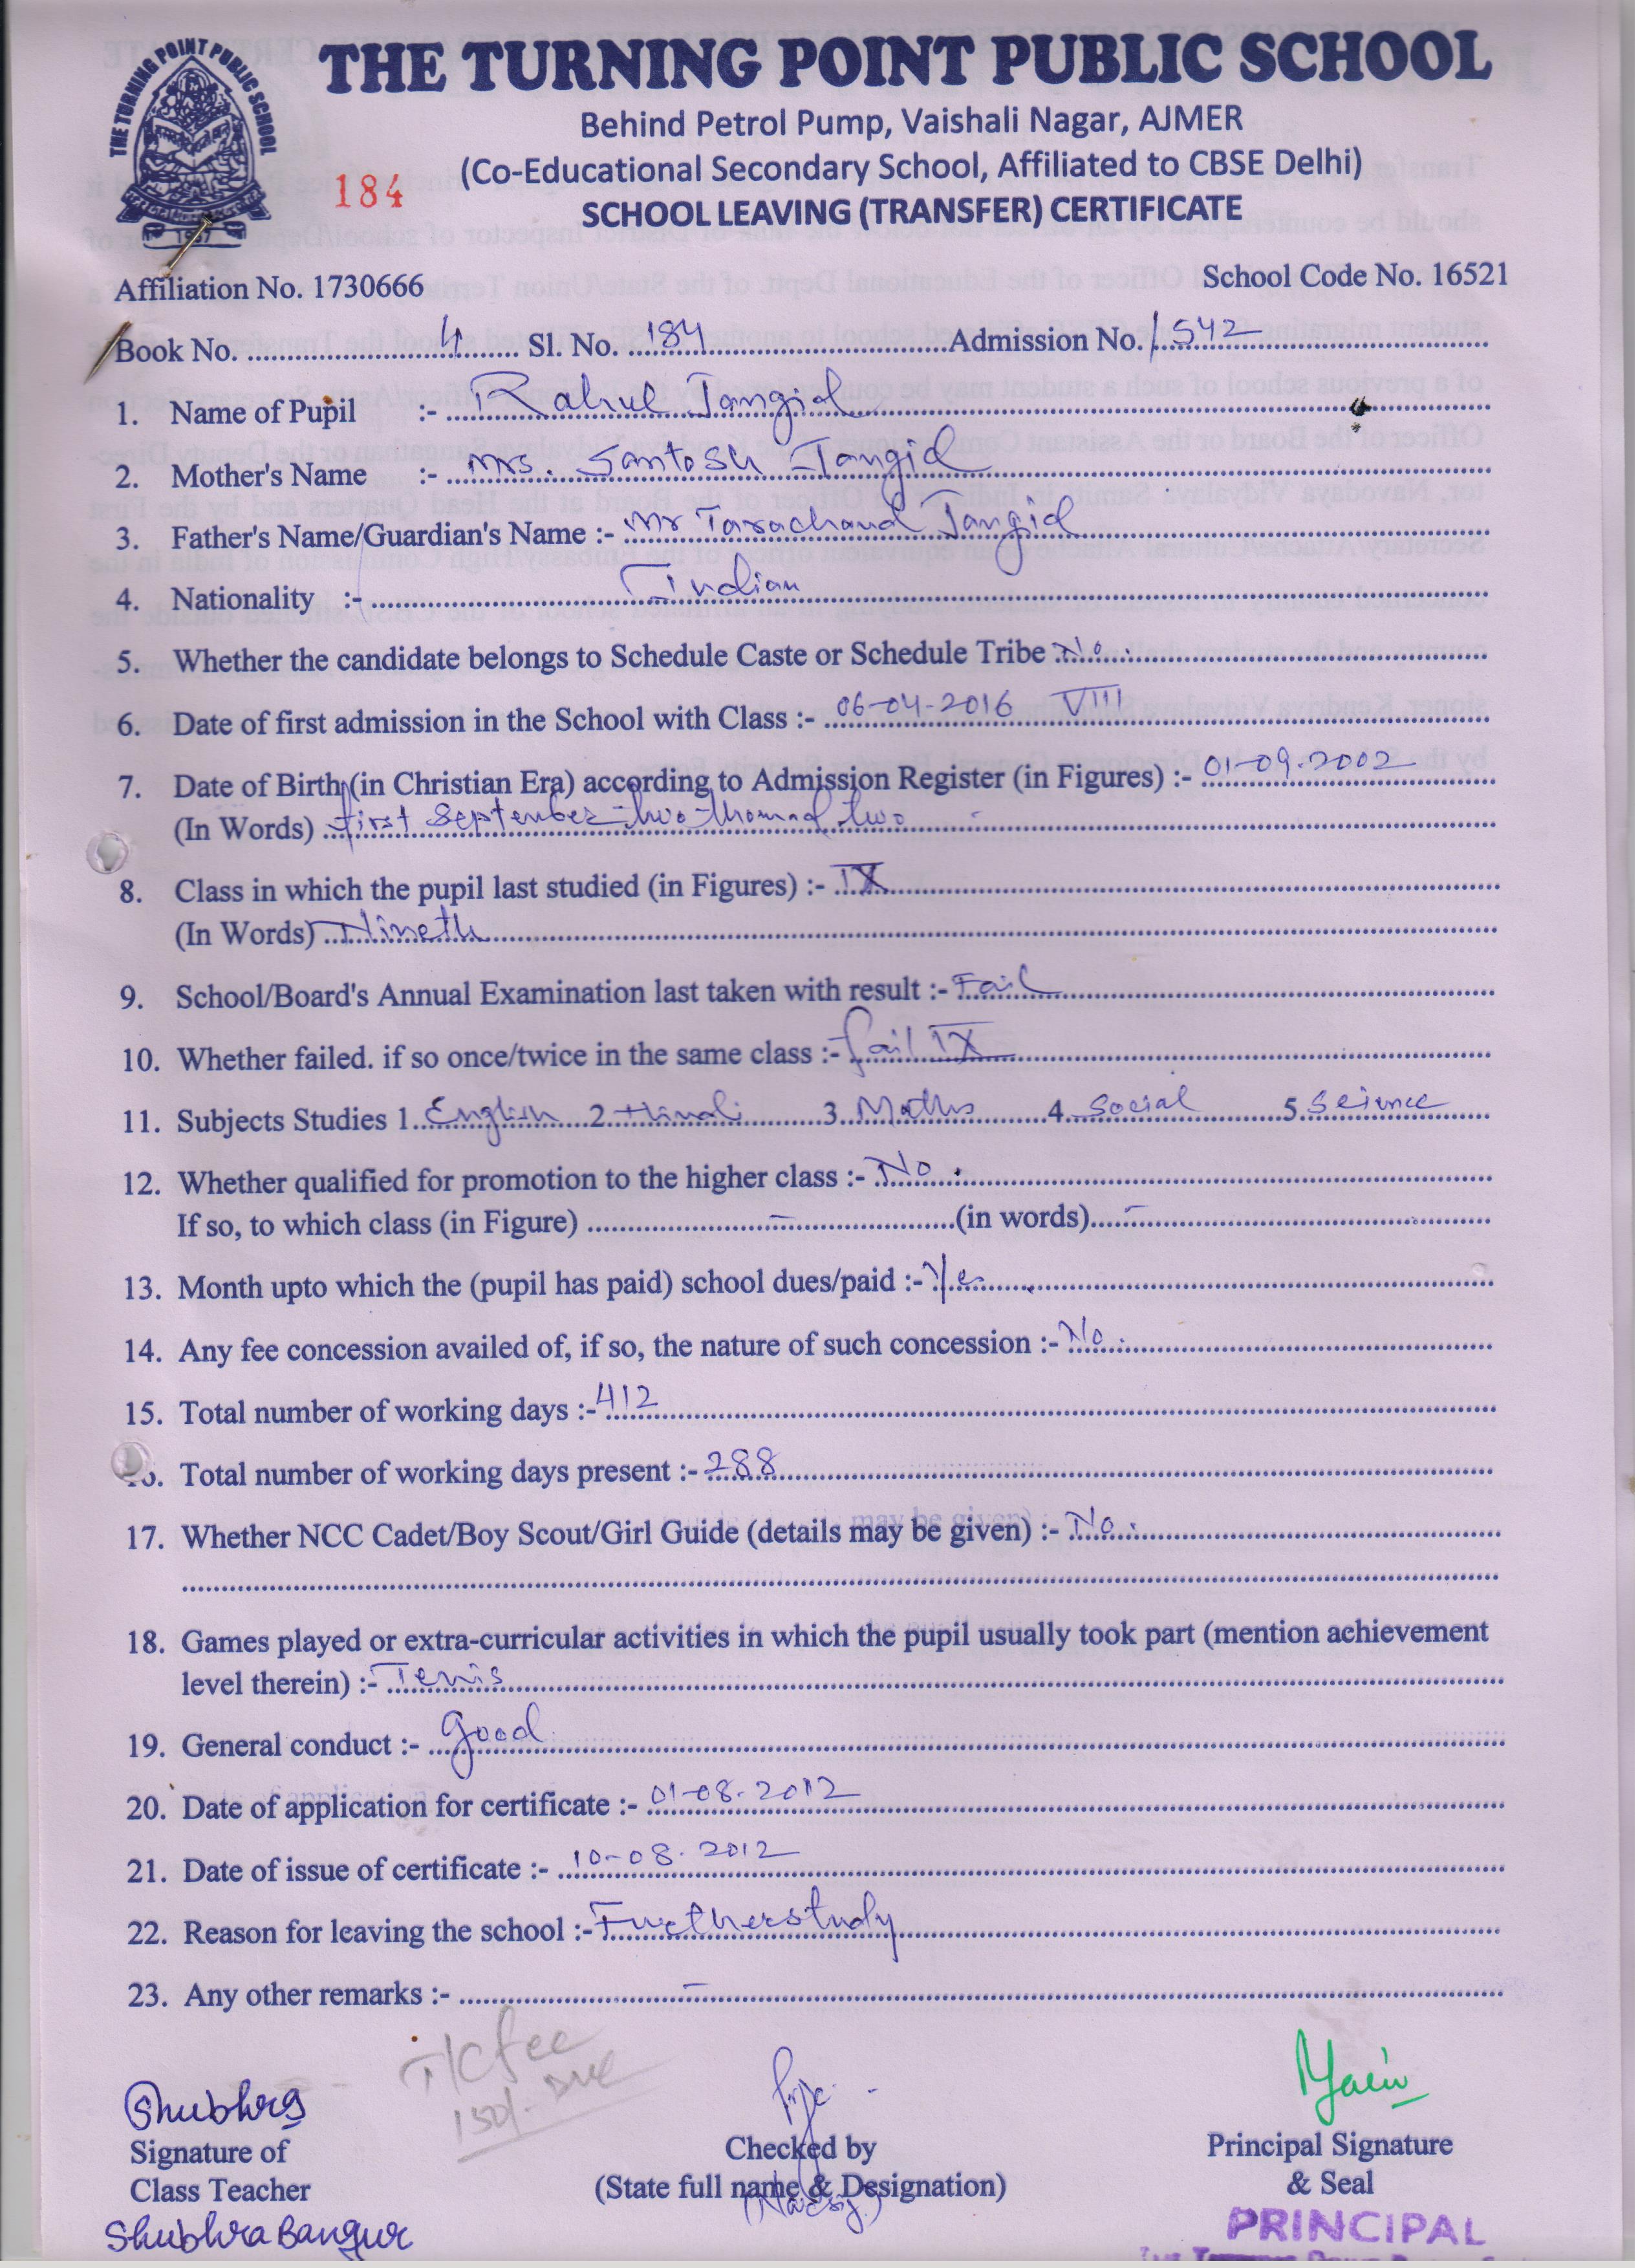 THE TURNING POINT PUBLIC SCHOOL
THE TURNING POINT PUBLIC SCHOOL
Behind Petrol Pump, Vaishali Nagar, AJMER
(Co-Educational Secondary School, Affiliated to CBSE Delhi)
184
SCHOOL LEAVING (TRANSFER) CERTIFICATE
Affiliation No. 1730666 School Code No. 16521
Book No. 4 Sl. No. 184 Admission No. 1542
1. Name of Pupil :- Rahul Jangid
2. Mother's Name :- Mrs. Santosh Jangid
3. Father's Name/Guardian's Name :- Mr Tarachand Jangid
4. Nationality :- Indian
5. Whether the candidate belongs to Schedule Caste or Schedule Tribe No.
6. Date of first admission in the School with Class :- 06-04-2016 VIII
7. Date of Birth (in Christian Era) according to Admission Register (in Figures) :- 01-09-2002
(In Words) first September two thousand two
8. Class in which the pupil last studied (in Figures) :- IX
(In Words) Nineth
9. School/Board's Annual Examination last taken with result :- Fail
10. Whether failed. if so once/twice in the same class :- fail IX
11. Subjects Studies 1. English 2. Hindi 3. Maths 4. Social 5. Science
12. Whether qualified for promotion to the higher class :- No.
If so, to which class (in Figure) - (in words) -
13. Month upto which the (pupil has paid) school dues/paid :- Yes
14. Any fee concession availed of, if so, the nature of such concession :- No.
15. Total number of working days :- 412
16. Total number of working days present :- 288
17. Whether NCC Cadet/Boy Scout/Girl Guide (details may be given) :- No.
18. Games played or extra-curricular activities in which the pupil usually took part (mention achievement
level therein) :- Tenis
19. General conduct :- good
20. Date of application for certificate :- 01-08-2012
21. Date of issue of certificate :- 10-08-2012
22. Reason for leaving the school :- Further study
23. Any other remarks :- -
T/C fee
150/- Due
Shubhra
Signature of Checked by Principal Signature
Class Teacher (State full name & Designation) & Seal
Shubhra Bangur PRINCIPAL